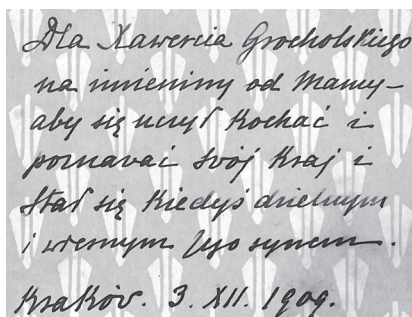 Dla Xawercia Grocholskiego
na imieniny od Mamy –
aby się uczył kochać i
poznawać swój Kraj i
stał się kiedyś dzielnym
i wiernym Jego synem.
Kraków. 3. XII. 1909.